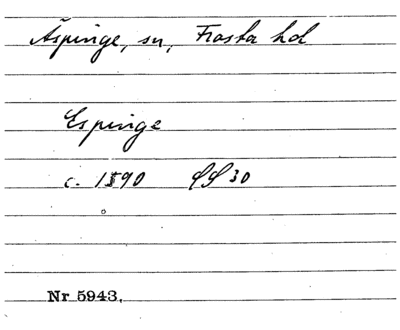 Äspinge, sn, Frosta hd
Espinge
c. 1590 SS 30
Nr 5943.